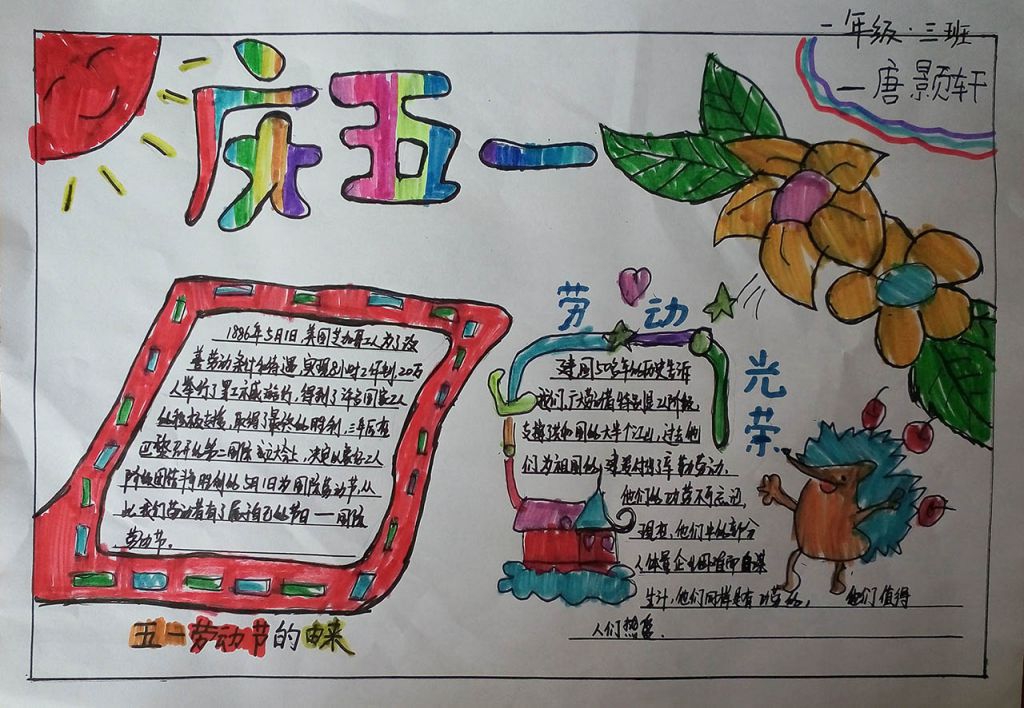 一年级·三班
一唐景轩
庆五一
1886年5月1日,美国芝加哥工人为了改
善劳动条件和待遇,实现8小时工作制,20万
人举行了罢工示威游行,得到了许多国家工人
的积极支援,取得了最终的胜利,三年后在
巴黎召开的第二国际成立大会上,决定以象征工人
阶级团结 胜利的5月1日为国际劳动节,从
此我们劳动者有了属于自己的节日——国际
劳动节。
五一劳动节的由来
劳动
光荣
建国50多年的历史告诉
我们,广大劳动者特别是工人阶级,
支撑了共和国的大半个江山,过去他
们为祖国的建设付出了辛勤劳动,
他们的功劳不可忘记,
现在,他们中的部分
人体量企业困难而自谋
生计,他们同样是有功劳的, 他们值得
人们热爱.